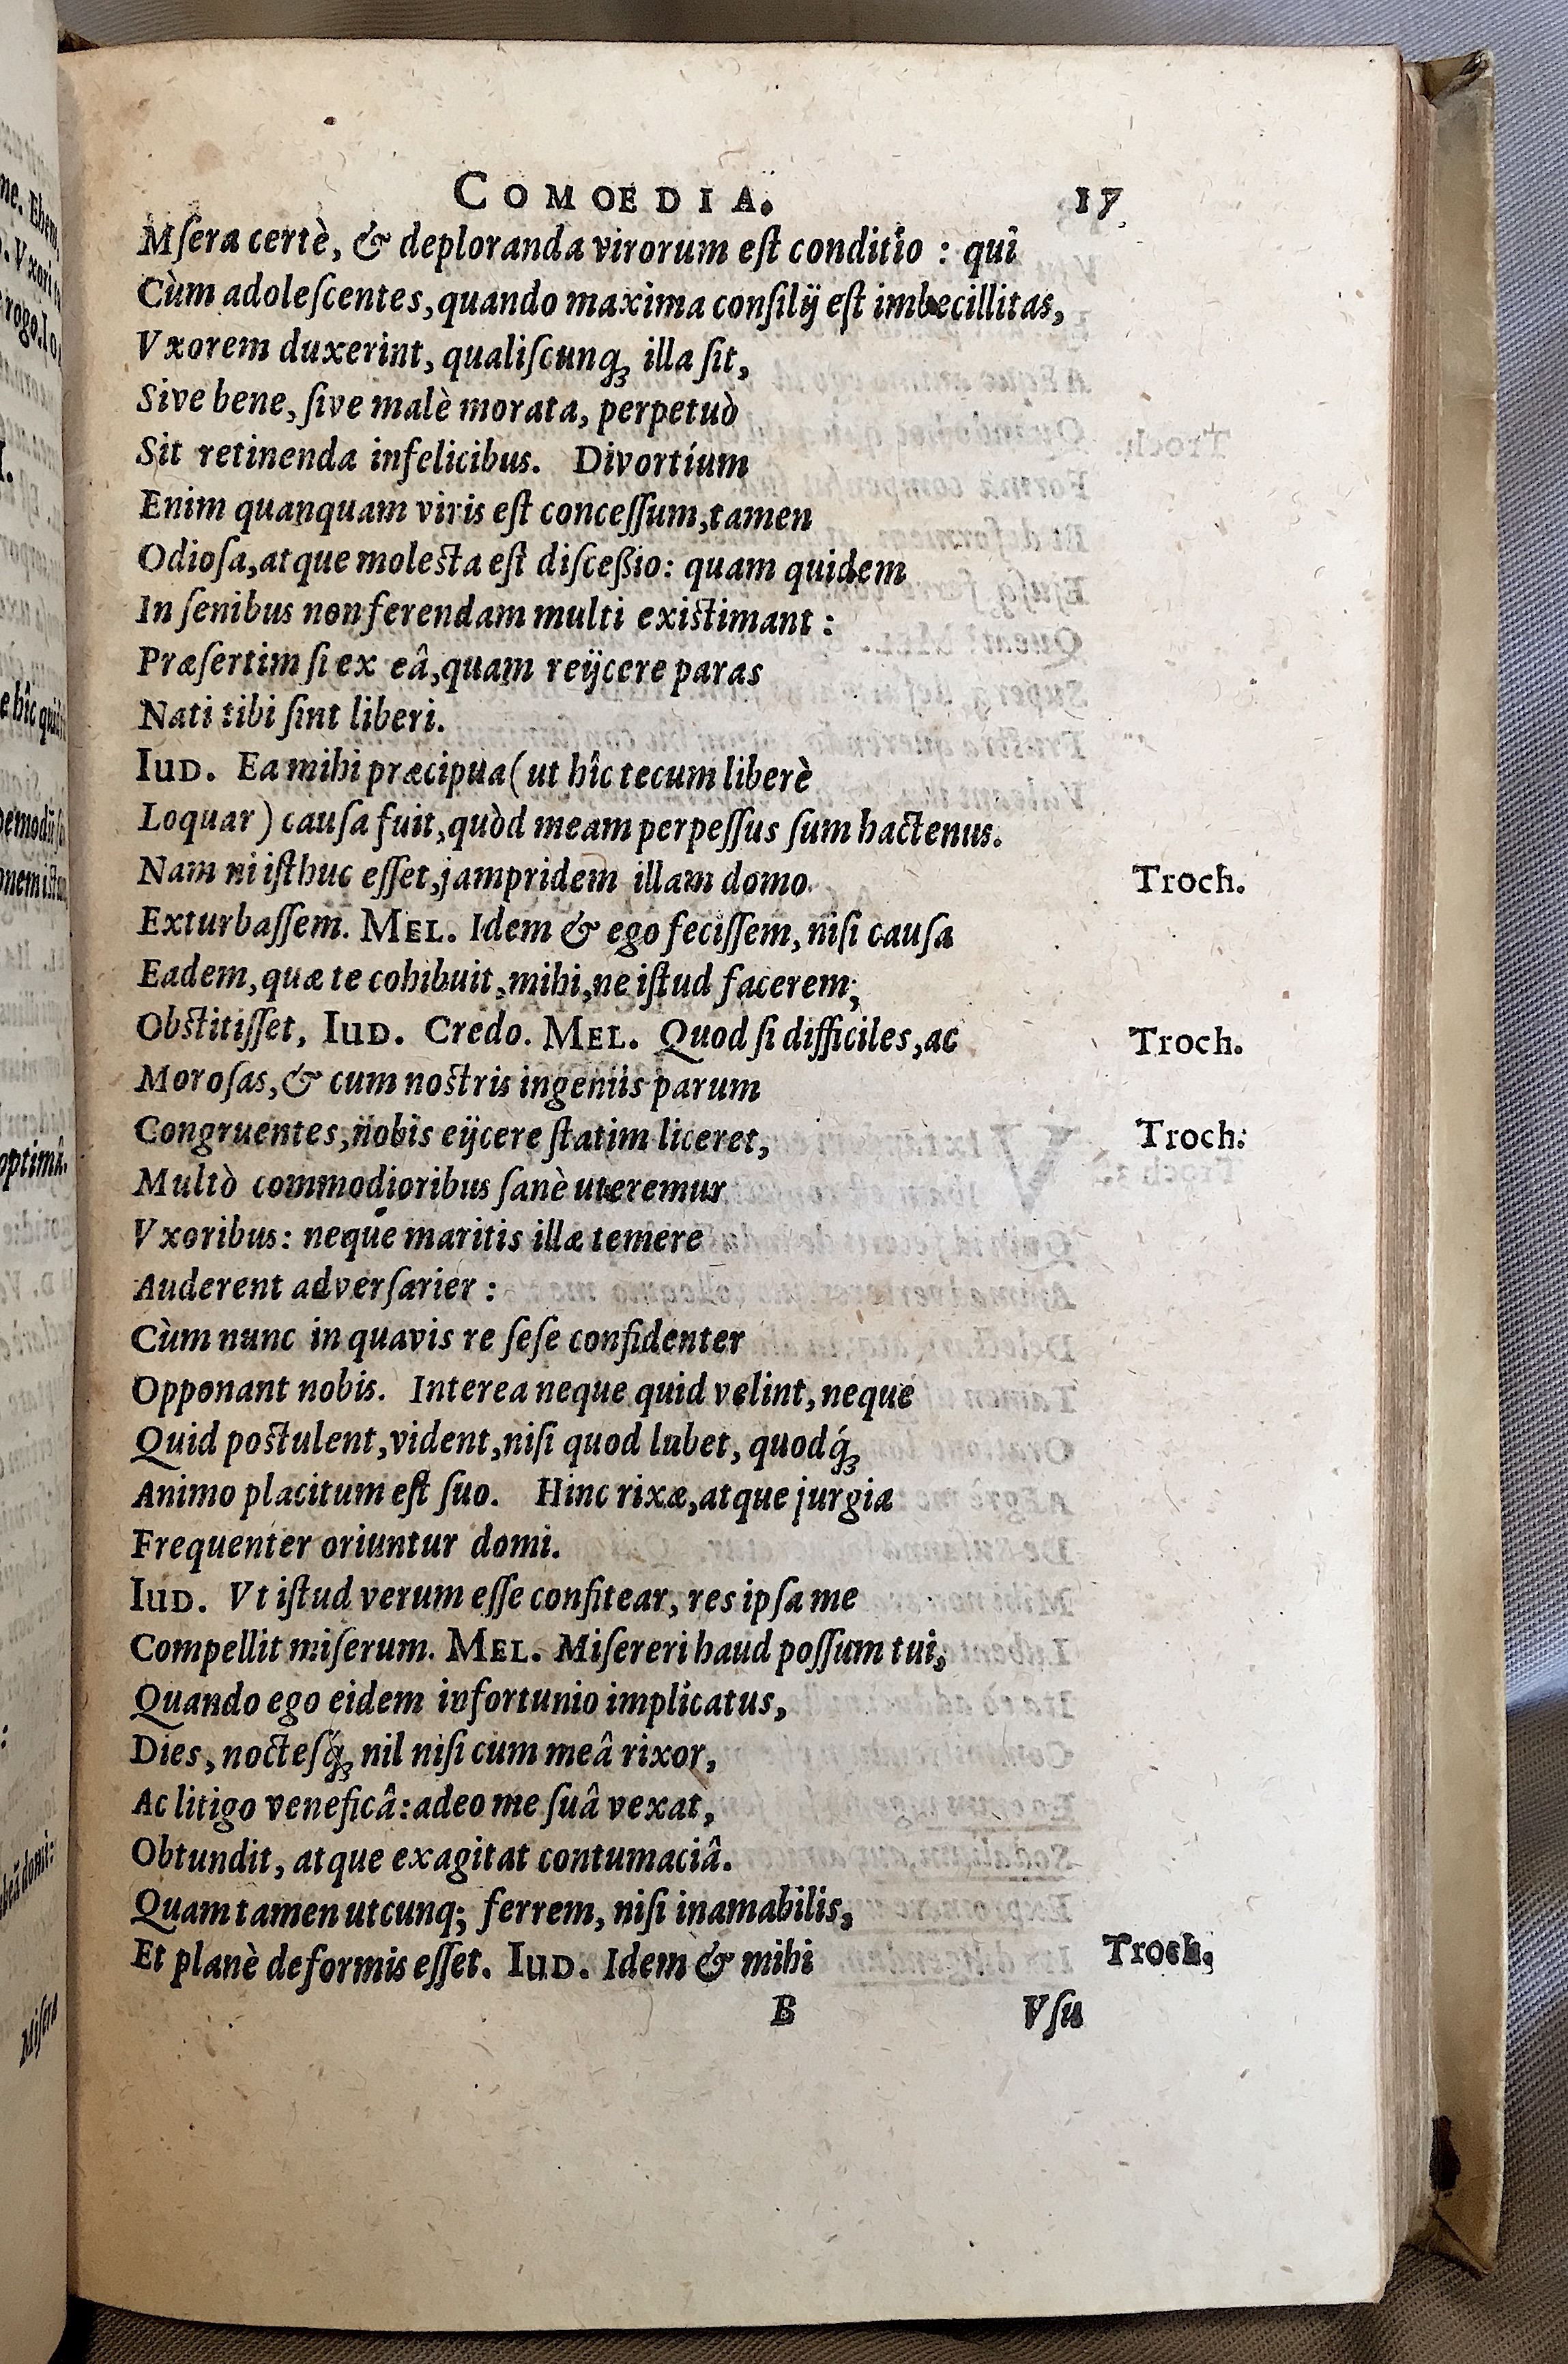 COMOEDIA. 17
Msera certè, & deploranda virorum est conditio : quî
Cùm adolescentes, quando maxima consilij est imbecillitas,
Vxorem duxerint, qualiscunq; illa sit,
Sive bene, sive malè morata, perpetuò
Sit retinenda infelicibus. Divortium
Enim quanquam viris est concessum, tamen
Odiosa, atque molesta est discessio: quam quidem
In senibus non ferendam multi existimant :
Præsertim si ex eâ, quam reijcere paras
Nati tibi sint liberi.
IUD. Ea mihi præcipua (ut hîc tecum liberè
Loquar) causa fuit, quòd meam perpessus sum hactenus.
Nam ni isthuc esset, jampridem illam domo Troch.
Exturbassem. MEL. Idem & ego fecissem, nisi causa
Eadem, quæ te cohibuit, mihi, ne istud facerem,
Obstitisset, IUD. Credo. MEL. Quod si difficiles, ac Troch.
Morosas, & cum nostris ingeniis parum
Congruentes, nobis eijcere statim liceret, Troch:
Multò commodioribus sanè uteremur
Vxoribus: neque maritis illæ temere
Auderent adversarier :
Cùm nunc in quavis re sese confidenter
Opponant nobis. Interea neque quid velint, neque
Quid postulent, vident, nisi quod lubet, quodq́;
Animo placitum est suo. Hinc rixæ, atque jurgia
Frequenter oriuntur domi.
IUD. Vt istud verum esse confitear, res ipsa me
Compellit miserum. MEL. Misereri haud possum tui,
Quando ego eidem infortunio implicatus,
Dies, noctesq́; nil nisi cum meâ rixor,
Ac litigo veneficâ: adeo me suâ vexat,
Obtundit, atque exagitat contumaciâ.
Quam tamen utcunq; ferrem, nisi inamabilis,
Et planè deformis esset. IUD. Idem & mihi Troch.
B Vsu